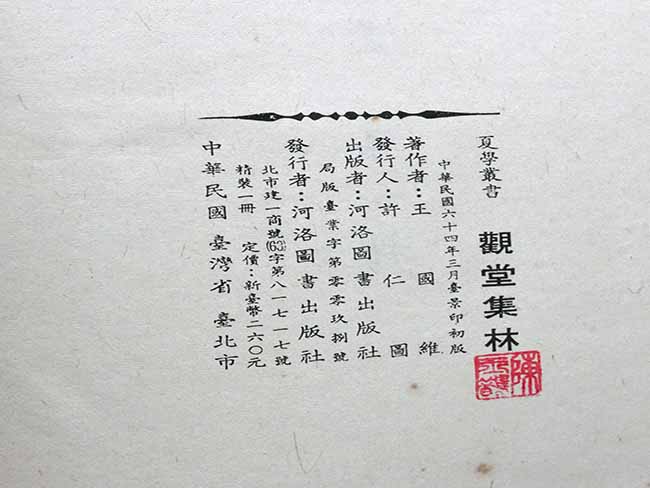 夏學叢書
觀堂集林
中華民國六十四年三月臺景印初版
著作者：王國維
發行人：許仁圖
出版者：河洛圖書出版社
局版臺業字第零零玖捌號
發行者：河洛圖書出版社
北市建一商號(63)字第八一七一七號
精裝一冊 定價：新臺幣二六〇元
中華民國 臺灣省 臺北市
陳